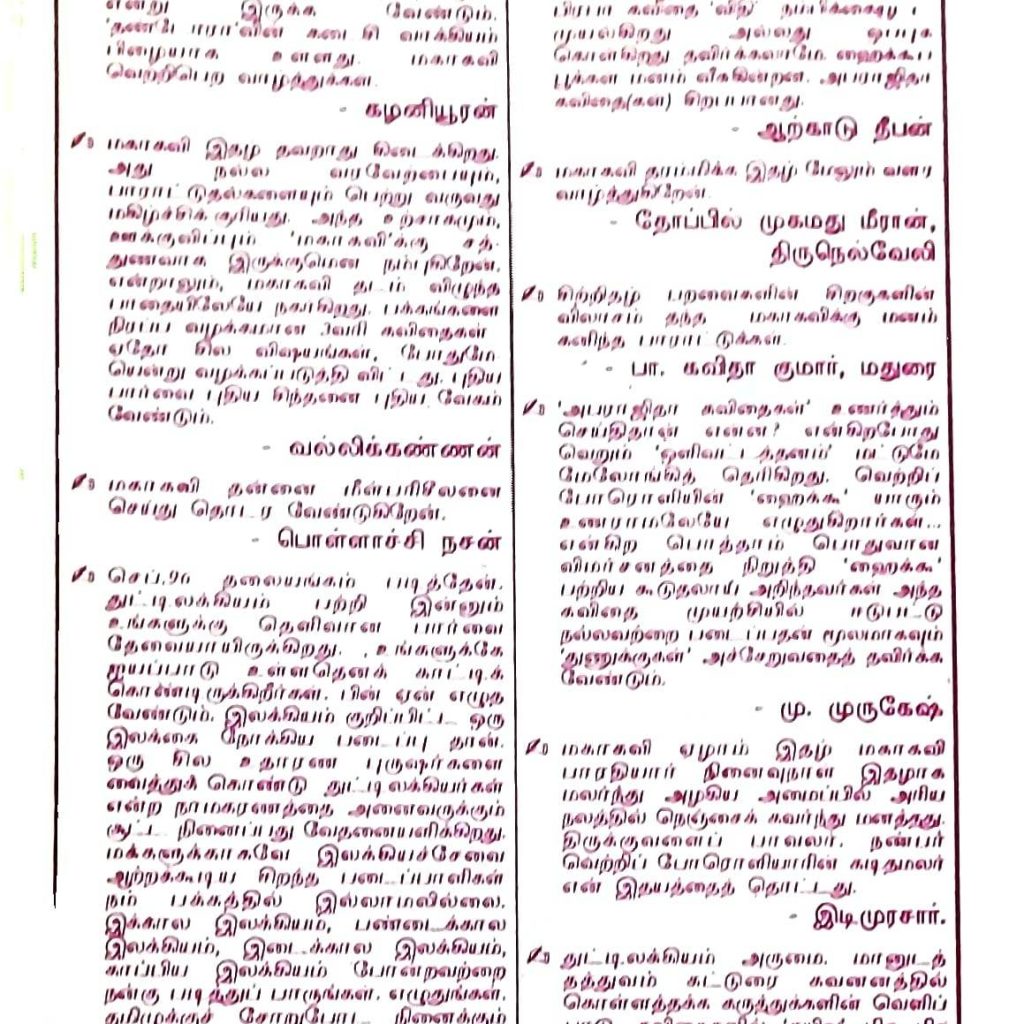 என்று இருக்க வேண்டும்.
பிழையாக உள்ளது. மகாகவி
வெற்றிபெற வாழ்த்துக்கள்.
- கழனியூரன்
மகாகவி இதழ் தவறாது கிடைக்கிறது.
அது நல்ல வரவேற்பையும்,
பாராட்டுதல்களையும் பெற்று வருவது
மகிழ்ச்சிக்குரியது. அந்த உற்சாகமும்,
ஊக்குவிப்பும் 'மகாகவி'க்கு சத்-
துணவாக இருக்குமென நம்புகிறேன்.
என்றாலும், மகாகவி தடம் விழுந்த
பாதையிலேயே நகர்கிறது. பக்கங்களை
நிரப்ப வழக்கமான 3வரி கவிதைகள்
ஏதோ சில விஷயங்கள், போதுமே-
யென்று வழக்கப்படுத்தி விட்டது. புதிய
பார்வை புதிய சிந்தனை புதிய வேகம்
வேண்டும்.
- வல்லிக்கண்ணன்
மகாகவி தன்னை மீள்பரிசீலனை
செய்து தொடர வேண்டுகிறேன்.
- பொள்ளாச்சி நசன்
செப்.96 தலையங்கம் படித்தேன்.
துட்டிலக்கியம் பற்றி இன்னும்
உங்களுக்கு தெளிவான பார்வை
தேவையாயிருக்கிறது. உங்களுக்கே
ஐயப்பாடு உள்ளதெனக் காட்டிக்
கொண்டிருக்கிறீர்கள். பின் ஏன் எழுத
வேண்டும். இலக்கியம் குறிப்பிட்ட ஒரு
இலக்கை நோக்கிய படைப்பு தான்.
ஒரு சில உதாரண புருஷர்களை
வைத்துக் கொண்டு துட்டிலக்கியர்கள்
என்ற நாமகரணத்தை அனைவருக்கும்
சூட்ட நினைப்பது வேதனையளிக்கிறது.
மக்களுக்காகவே இலக்கியச்சேவை
ஆற்றக்கூடிய சிறந்த படைப்பாளிகள்
நம் பக்கத்தில் இல்லாமலில்லை.
இக்கால இலக்கியம், பண்டைக்கால
இலக்கியம், இடைக்கால இலக்கியம்,
காப்பிய இலக்கியம் போன்றவற்றை
நன்கு படித்துப் பாருங்கள். எழுதுங்கள்.
தமிழுக்குச் சோறுபோட நினைக்கும்
முயல்கிறது அல்லது
கொள்கிறது தவிர்க்கலாமே. ஹைக்கூப்
பூக்கள் மணம் வீசுகின்றன. அபராஜிதா
கவிதை(கள்) சிறப்பானது.
- ஆற்காடு தீபன்
மகாகவி தரம்மிக்க இதழ் மேலும் வளர
வாழ்த்துகிறேன்.
- தோப்பில் முகமது மீரான்,
திருநெல்வேலி
சிற்றிதழ் பறவைகளின் சிறகுகளின்
விலாசம் தந்த மகாகவிக்கு மனம்
கனிந்த பாராட்டுக்கள்.
- பா. கவிதா குமார், மதுரை
'அபராஜிதா கவிதைகள்' உணர்த்தும்
செய்திதான் என்ன? என்கிறபோது
வெறும் 'ஒளிவட்டத்தனம்' மட்டுமே
மேலோங்கித் தெரிகிறது. வெற்றிப்
பேரொளியின் 'ஹைக்கூ' யாரும்
உணராமலேயே எழுதுகிறார்கள்...
என்கிற பொத்தாம் பொதுவான
விமர்சனத்தை நிறுத்தி 'ஹைக்கூ'
பற்றிய கூடுதலாய் அறிந்தவர்கள் அந்த
கவிதை முயற்சியில் ஈடுபட்டு
நல்லவற்றை படைப்பதன் மூலமாகவும்
'துணுக்குகள்' அச்சேறுவதைத் தவிர்க்க
வேண்டும்.
- மு. முருகேஷ்
மகாகவி ஏழாம் இதழ் மகாகவி
பாரதியார் நினைவுநாள் இதழாக
மலர்ந்து அழகிய அமைப்பில் அரிய
நலத்தில் நெஞ்சைக் கவர்ந்து மணத்தது.
திருக்குவளைப் பாவலர். நண்பர்
வெற்றிப் பேரொளியாரின் கடிதமலர்
என் இதயத்தைத் தொட்டது.
- இடிமுரசார்.
துட்டிலக்கியம் அருமை. மானுடத்
தத்துவம் கட்டுரை கவனத்தில்
கொள்ளத்தக்க கருத்துக்களின் வெளிப்